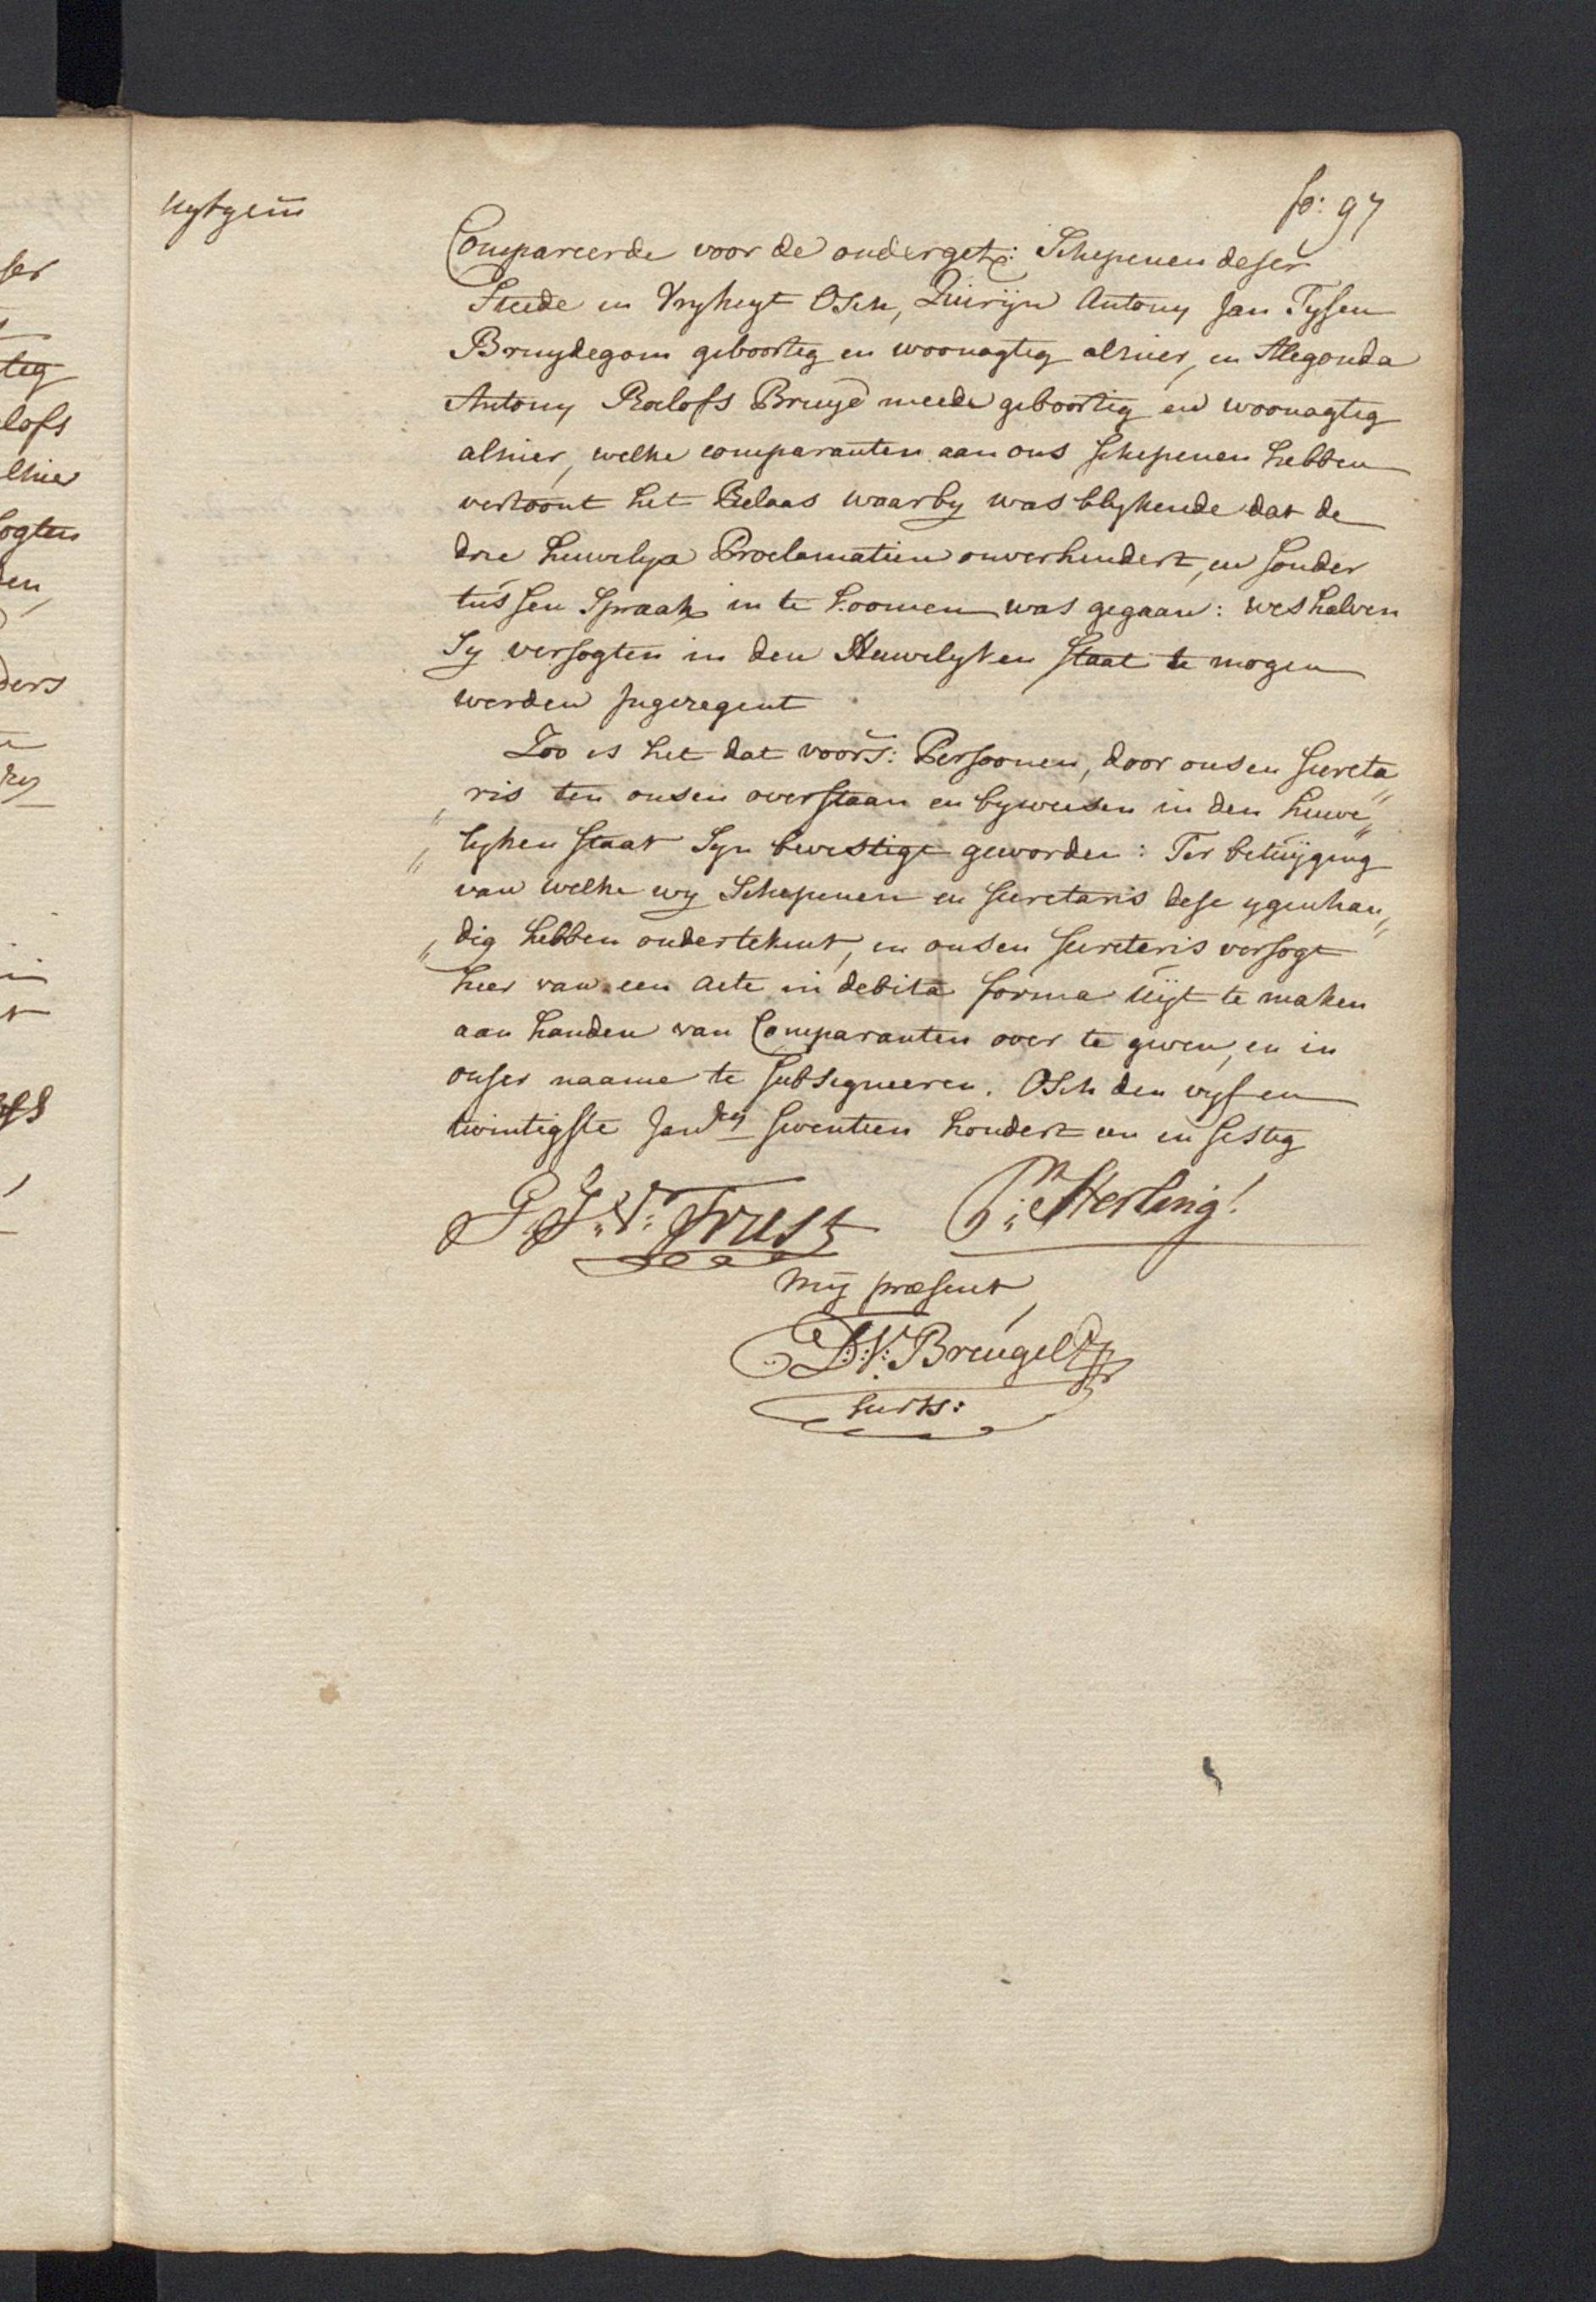 fo: 97
uytgem̄
Compareerde voor de onderget: Schepenen deser
Steede en Vryheyt Osch, Quirijn Antony Jan Tyssen
Bruydegom geboortig en woonagtig alhier, en Alegonda
Antony Roelofs Bruyd meede geboortig en woonagtig
alhier, welke comparanten aan ons schepenen hebben
vertoont het Relaas waarby was blykende dat de
drie huwelyx Proclamatien onverhindert, en sonder
tussen Spraak in te koomen was gegaan: weshalven
Sy versogten in den Huwelyken staat te mogen
werden Ingezegent
Zoo is het dat voors: Persoonen, door onsen Secreta„
„ris ten onsen overstaan en bywesen in den huwe„
„lyken staat Syn bevestigt geworden: Ter betuyging
van welke wy Schepenen en secretaris dese ygenhan„
„dig hebben ondertekent, en onsen secretaris versogt
hier van een acte in debita forma uijt te maken
aan handen van Comparanten over te geven, en in
onser naame te subsigneeren. Osch den vyf en
twintigste Janry seventien hondert een en sestig
P. Herling
mij præsent
D: V: Breugel
secrts:
ser
teg
lofs
lhier
ogten
den
ders